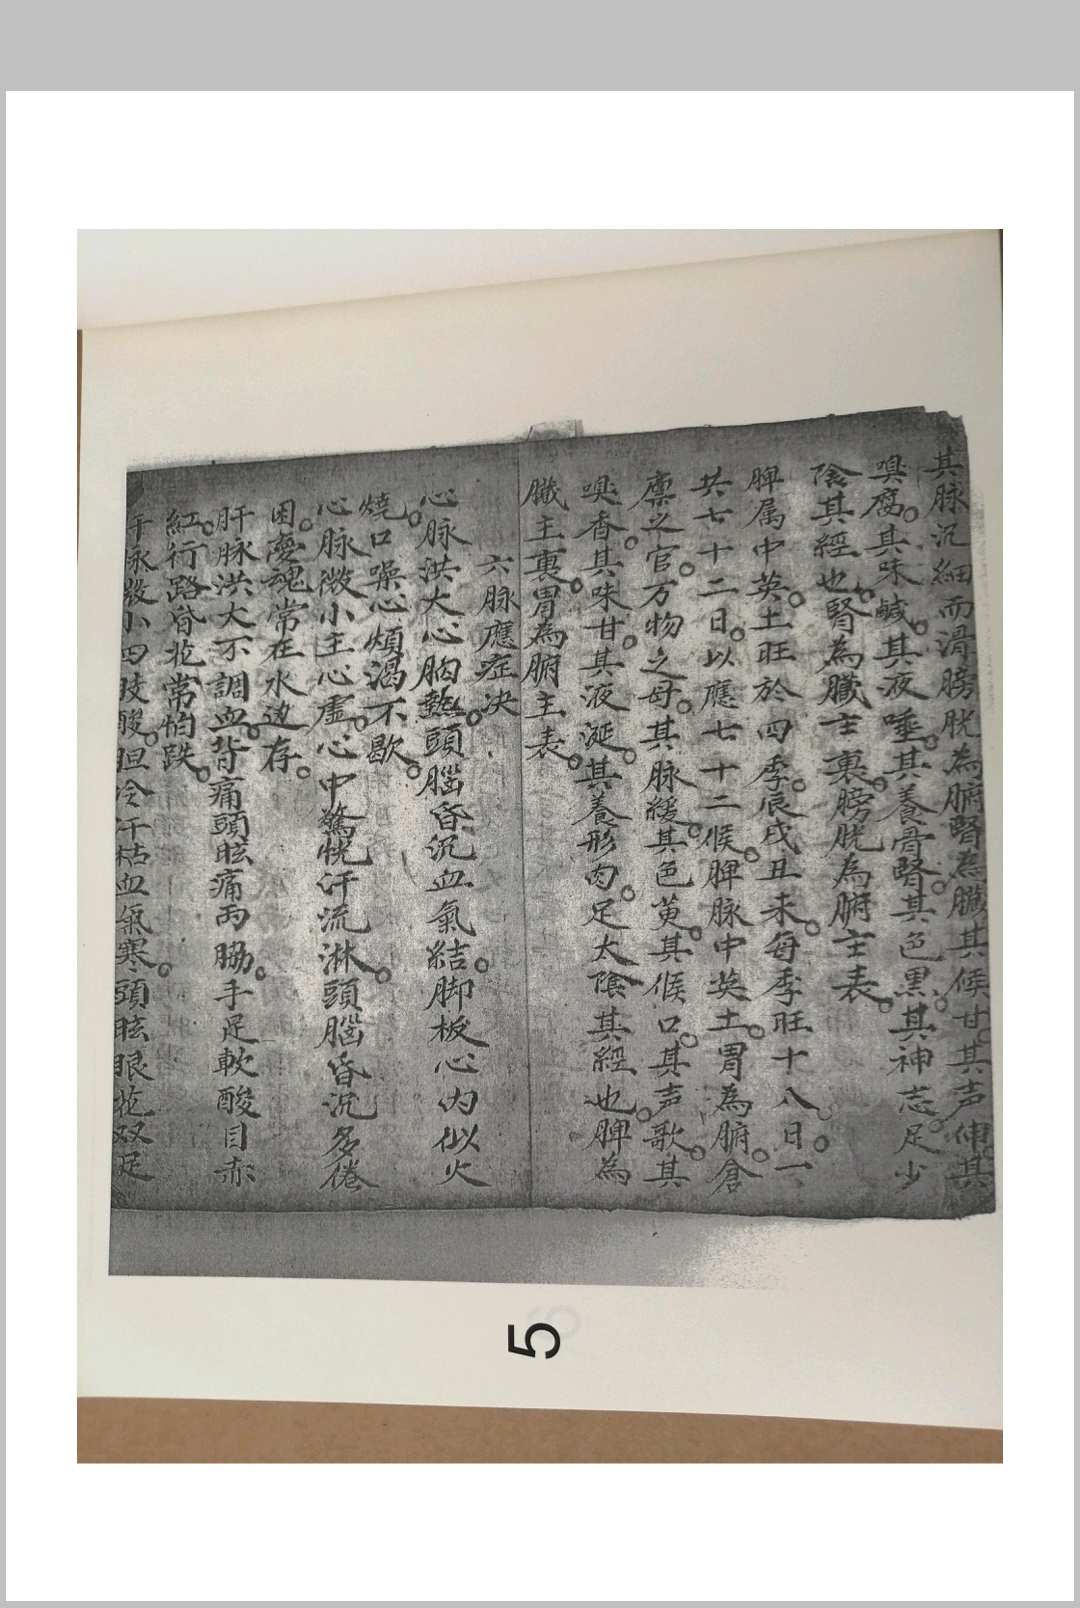 其脉沉細而滑膀胱為腑腎為臟其候甘其声伸其
嗅腐其味鹹其夜唾其養骨腎其色黑其神志足少
陰其經也腎為臟主裏膀胱為腑主表
脾属中英土旺於四季辰戌丑未每季旺十八日一
共七十二日以應七十二候脾脉中英土胃為腑倉
廪之官万物之母其脉緩其色黄其候口其声歌其
嗅香其味甘其液涎其養形肉足太陰其經也脾為
臟主裏胃為腑主表
六脉應症决
心脉洪大心胸熱頭腦昏沉血氣結脚板心内似火
燒口噪心煩渴不歇
心脉微小主心虚心中驚恍汗流淋頭腦昏沉多倦
困憂魂常在水边存
肝脉洪大不調血背痛頭眩痛两脇手足軟酸目赤
紅行路昏花常怕跌
肝脉微小四肢酸胆冷汗枯血氣寒頭眩眼花双足
5